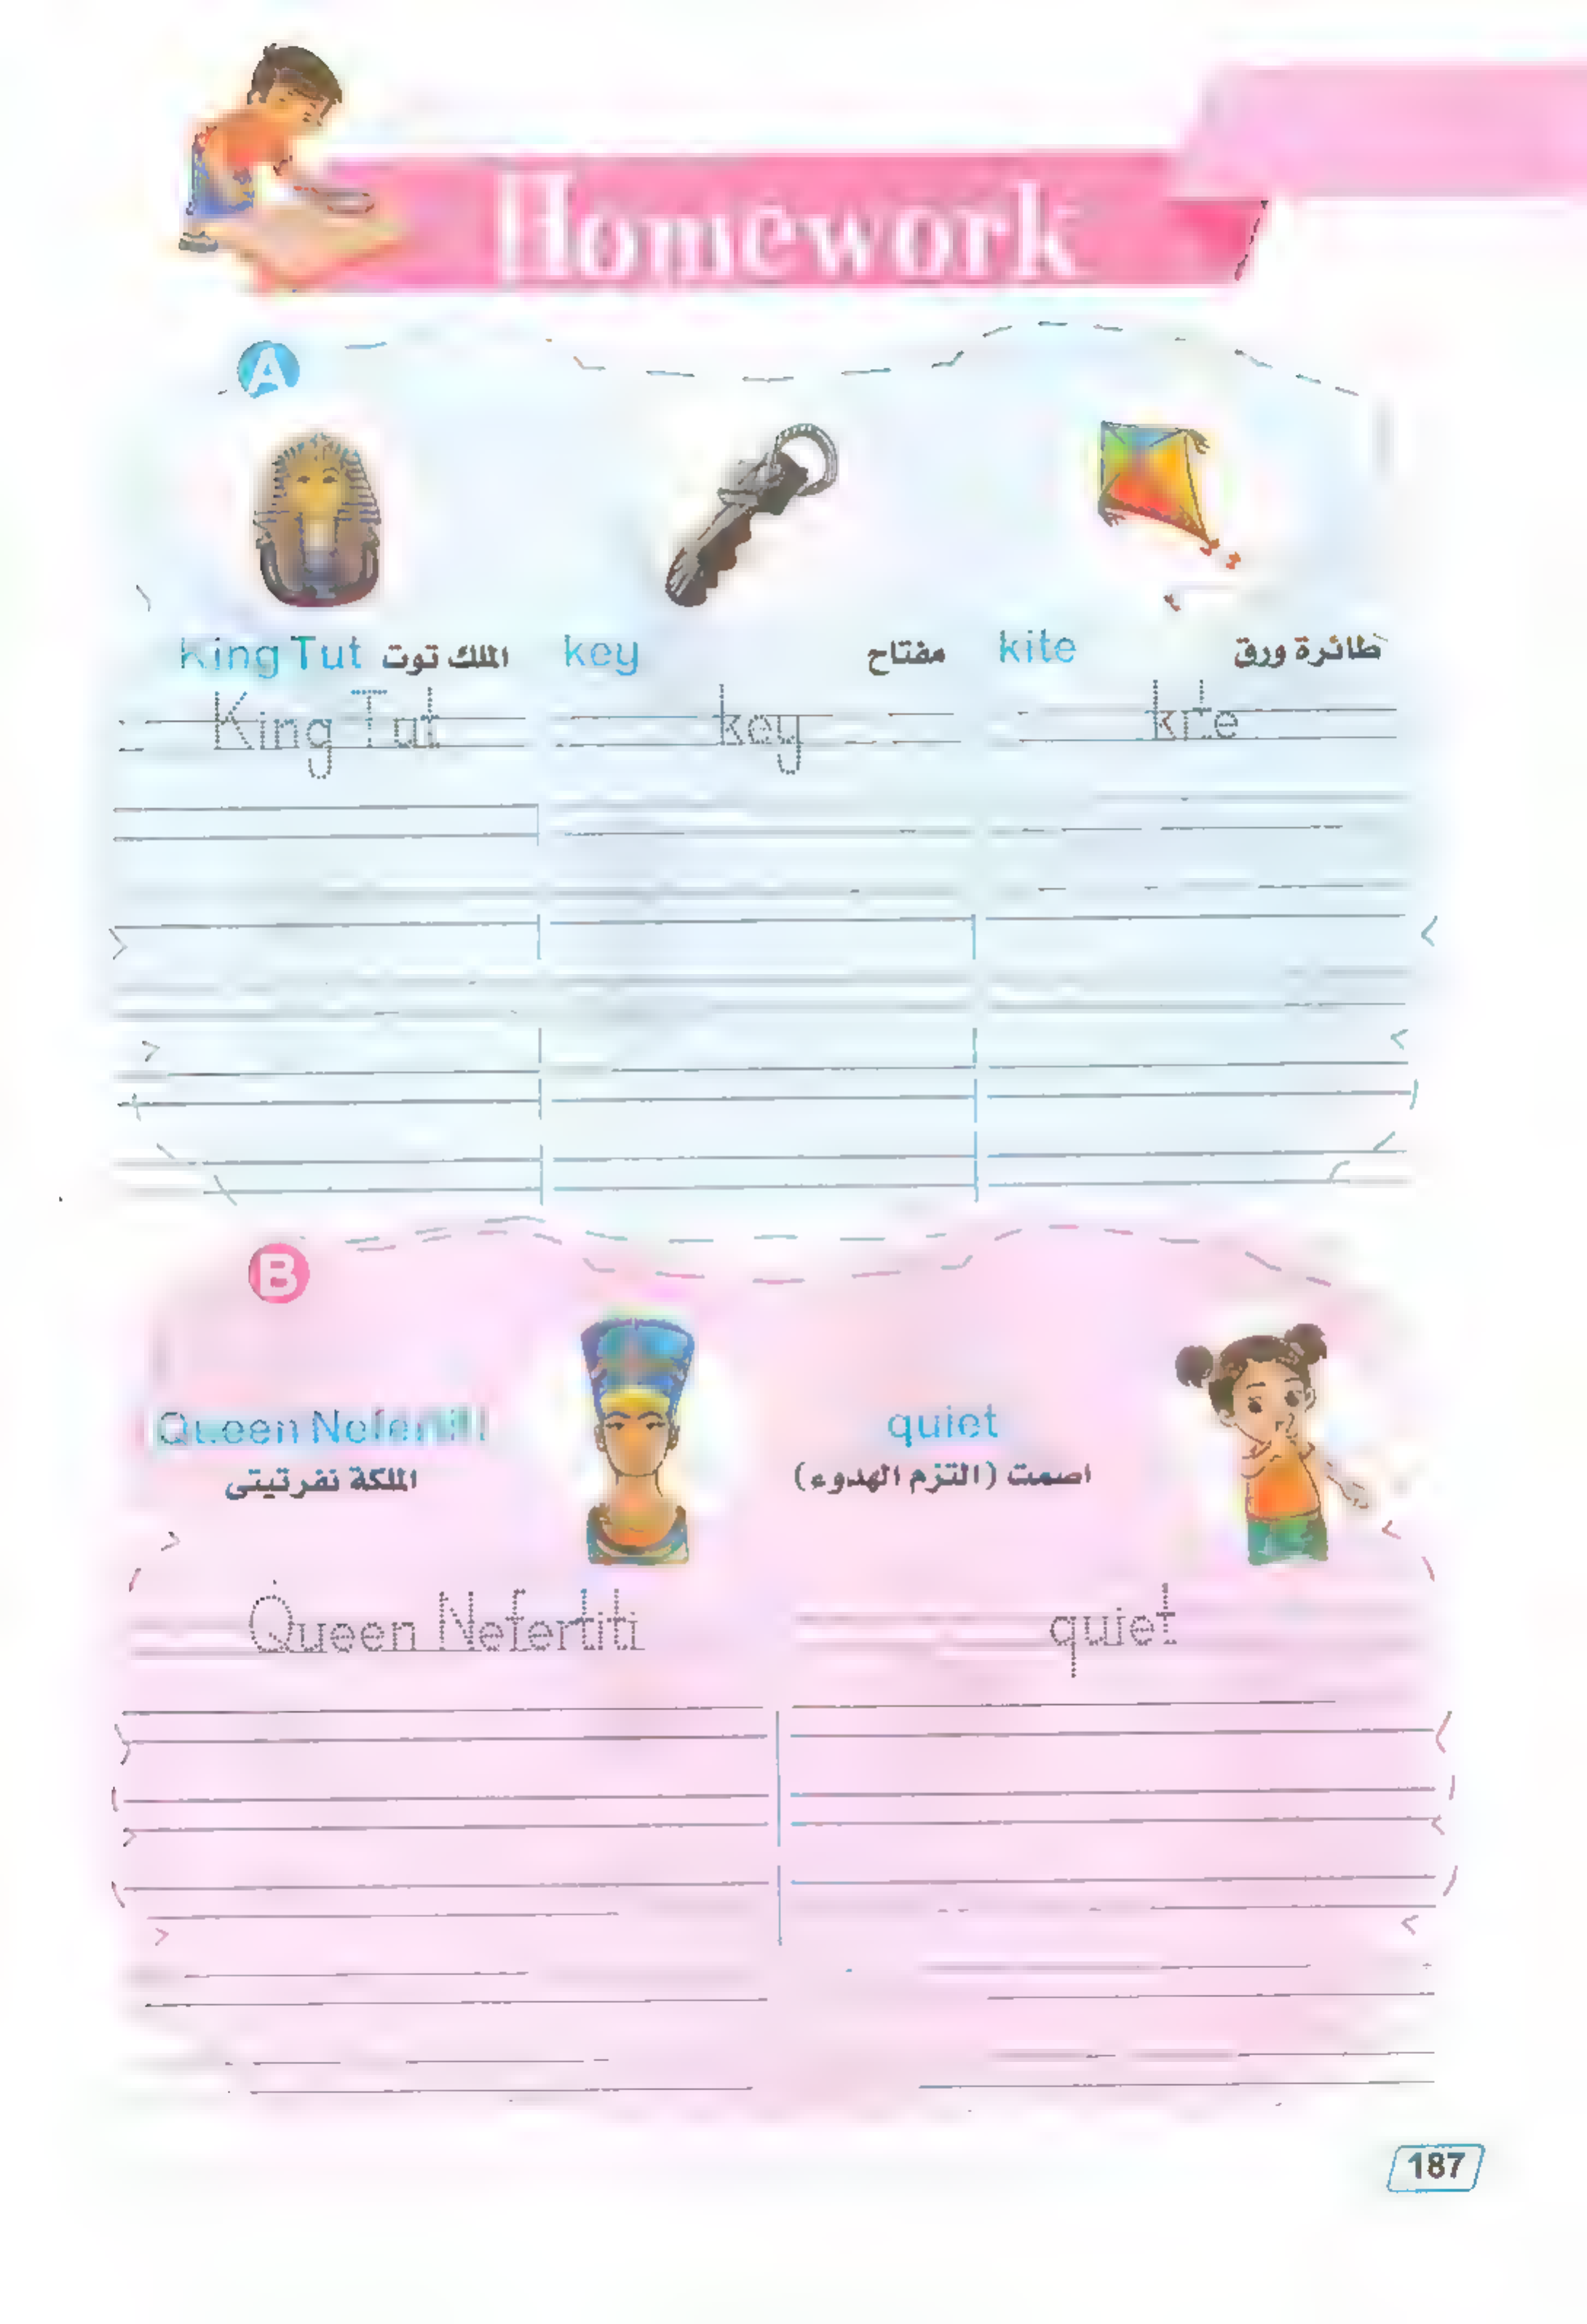 Homework
A
King Tut الملك توت
key مفتاح
kite طائرة ورق
King Tut
key
kite
B
Queen Nefertiti
الملكة نفرتيتى
quiet
اصمت (التزم الهدوء)
Queen Nefertiti
quiet
187